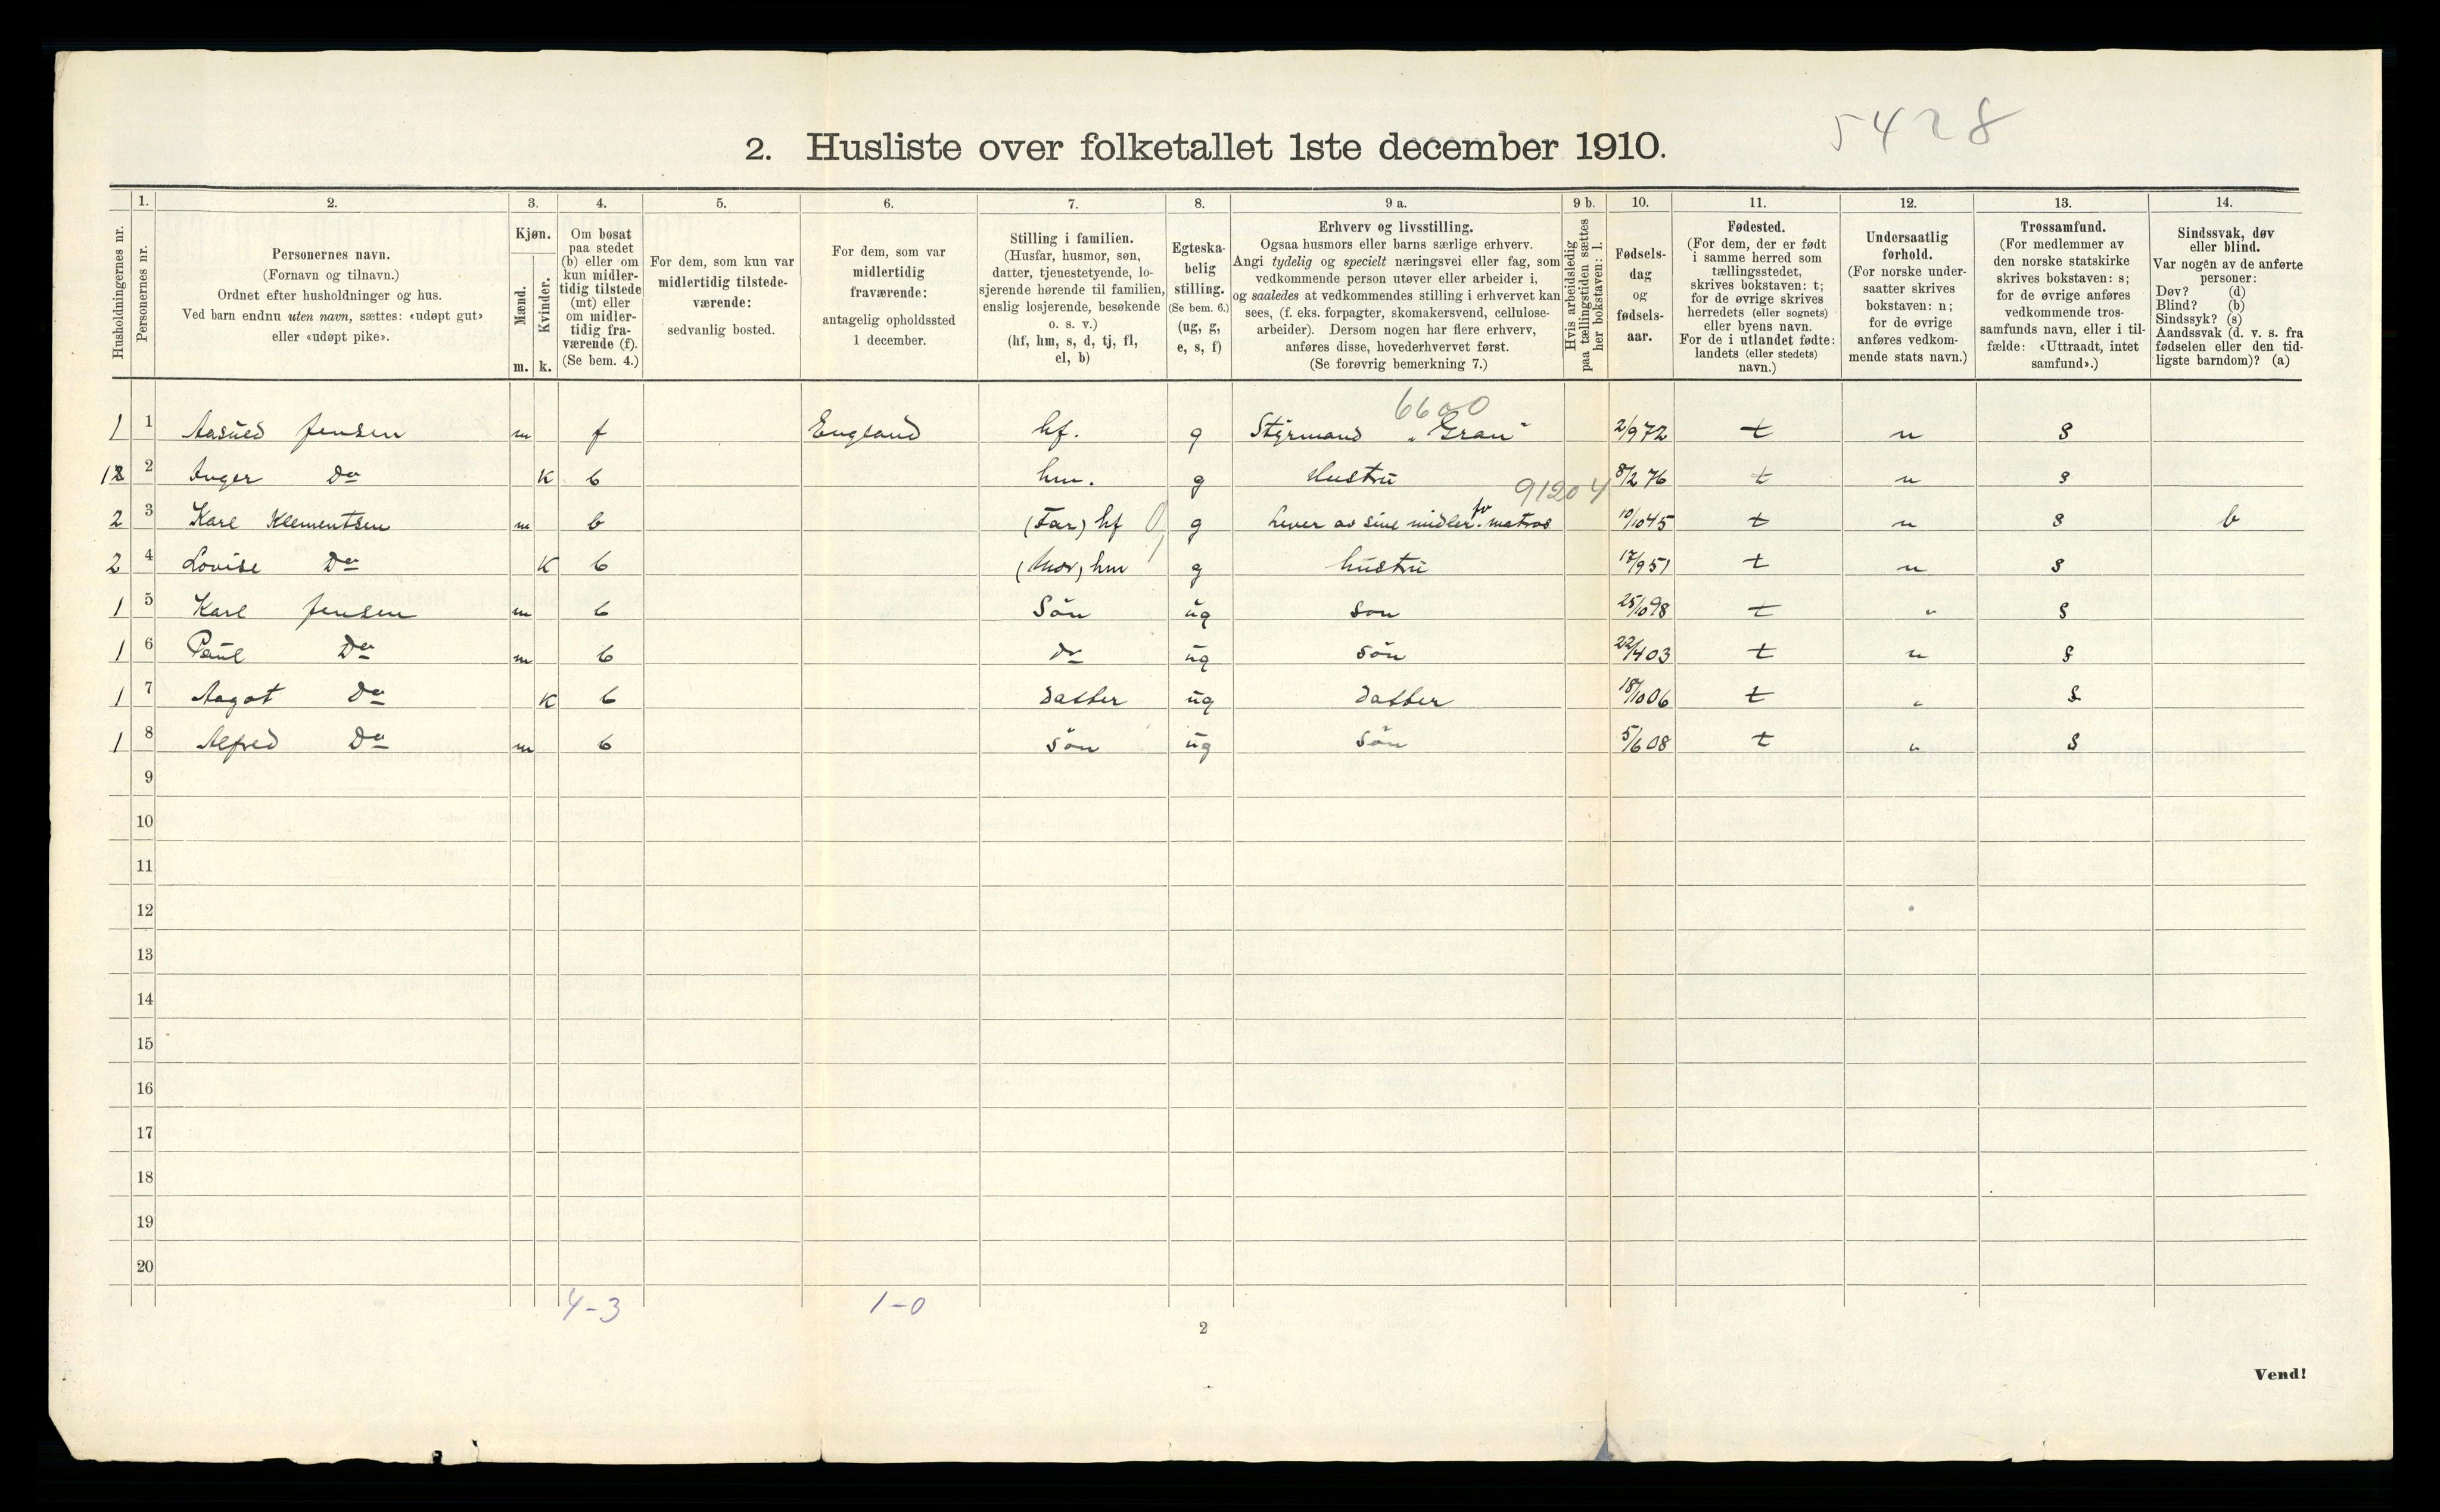 5428
2. Husliste over folketallet 1ste december 1910.
Husholdningernes nr.
1.
Personernes nr.
2.
Personernes navn.
(Fornavn og tilnavn.)
Ordnet efter husholdninger og hus.
Ved barn endnu uten navn, sættes: «udøpt gut»
eller «udøpt pike».
3.
Kjøn.
Mænd.
Kvinder.
m. k.
4.
Om bosat
paa stedet
(b) eller om
kun midler-
tidig tilstede
(mt) eller
om midler-
tidig fra-
værende (f).
(Se bem. 4.)
5.
For dem, som kun var
midlertidig tilstede-
værende:
sedvanlig bosted.
6.
For dem, som var
midlertidig
fraværende:
antagelig opholdssted
1 december.
7.
Stilling i familien.
(Husfar, husmor, søn,
datter, tjenestetyende, lo-
sjerende hørende til familien,
enslig losjerende, besøkende
o. s. v.)
(hf, hm, s, d, tj, fl,
el, b)
8.
Egteska-
belig
stilling.
(Se bem. 6.)
(ug, g,
e, s, f)
9 a.
Erhverv og livsstilling.
Ogsaa husmors eller barns særlige erhverv.
Angi tydelig og specielt næringsvei eller fag, som
vedkommende person utøver eller arbeider i,
og saaledes at vedkommendes stilling i erhvervet kan
sees, (f. eks. forpagter, skomakersvend, cellulose-
arbeider). Dersom nogen har flere erhverv,
anføres disse, hovederhvervet først.
(Se forøvrig bemerkning 7.)
9 b.
Hvis arbeidsledig
paa tællingstiden sættes
her bokstaven: l.
10.
Fødsels-
dag
og
fødsels-
aar.
11.
Fødested.
(For dem, der er født
i samme herred som
tællingsstedet,
skrives bokstaven: t;
for de øvrige skrives
herredets (eller sognets)
eller byens navn.
For de i utlandet fødte:
landets (eller stedets)
navn.)
12.
Undersaatlig
forhold.
(For norske under-
saatter skrives
bokstaven: n;
for de øvrige
anføres vedkom-
mende stats navn.)
13.
Trossamfund.
(For medlemmer av
den norske statskirke
skrives bokstaven: s;
for de øvrige anføres
vedkommende tros-
samfunds navn, eller i til-
fælde: «Uttraadt, intet
samfund».)
14.
Sindssvak, døv
eller blind.
Var nogen av de anførte
personer:
Døv? (d)
Blind? (b)
Sindssyk? (s)
Aandssvak (d. v. s. fra
fødselen eller den tid-
ligste barndom)? (a)
6600
1 1 Aasued Jensen m f England hf. g Styrmand "Gran" 2/9 72 t n s
2 Inger Do K b hm. g Hustru 8/2 76 t n s
91204
2 3 Karl Klementsen m b (Far) hf g Lever av sine midler fv. matros 10/10 45 t n s b
2 4 Lovise Do K b (Mor) hm g hustru 17/9 51 t n s
1 5 Karl Jensen m b Sön ug son 25/10 98 t " s
1 6 Paul Do m b do ug sön 22/4 03 t n s
1 7 Aagot Do K b datter ug datter 18/10 06 t " s
1 8 Alfred Do m b sön ug sön 5/6 08 t " s
9
10
11
12
13
14
15
16
17
18
19
20
4-3 1-0
2
Vend!